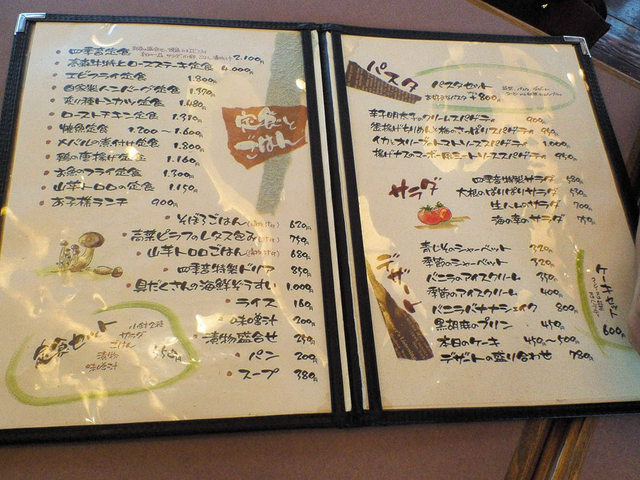 四季音定食 2.100円
ロースステーキ定食 4.000円
エビフライ定食 1.800円
自家製ハンバーグ定食
変り種トンカツ定食 1.480円
ローストチキン定食 1.380円
焼魚定食 1.200〜1.600円
メバルの煮付け定食 1.800円
鶏の唐揚げ定食 1.160円
お魚のフライ定食 1.300円
山芋トロロの定食 1.150円
お子様ランチ 900円
定食とごはん
そぼろごはん 620円
高菜ピラフのレタス包み 750円
山芋トロロごはん 680円
四季音特製ドリア 850円
具だくさんの海鮮ぞうすい 1.000円
ライス 160円
味噌汁 200円
漬物盛合せ 250円
パン 200円
スープ 380円
定食セット
サラダ
ごはん
漬物
味噌汁
パスタ
パスタセット
+800円
辛子明太子のクリームスパゲティ 900円
釜揚げちりめんと梅のさっぱりスパゲティ 950円
イカとオリーブのトマトソーススパゲティ 1.000円
揚げナスのミートソーススパゲティ 950円
サラダ
四季音特製サラダ 680円
大根のぱりぱりサラダ 530円
生ハムのサラダ 700円
海の幸のサラダ 750円
デザート
青じそのシャーベット 320円
季節のシャーベット 320円
バニラのアイスクリーム 350円
季節のアイスクリーム 400円
バニラバナナシェイク 800円
黒胡麻のプリン 450円
本日のケーキ 450〜500円
デザートの盛り合わせ 780円
ケーキセット
600円